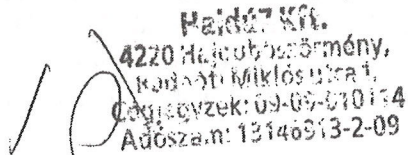 Hajdú7 Kft.
4220 Hajdúböszörmény,
Radnóti Miklós utca 1.
Cégjegyzék: 09-09-010114
Adószám: 13146913-2-09